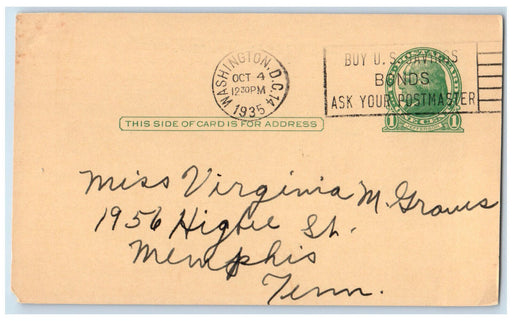 WASHINGTON, D.C. 14
OCT 4
1230PM
1935
BUY U.S. SAVINGS
BONDS
ASK YOUR POSTMASTER
THIS SIDE OF CARD IS FOR ADDRESS
1 1
Miss Virginia M. Graves
1956 Higbee St.
Memphis
Tenn.